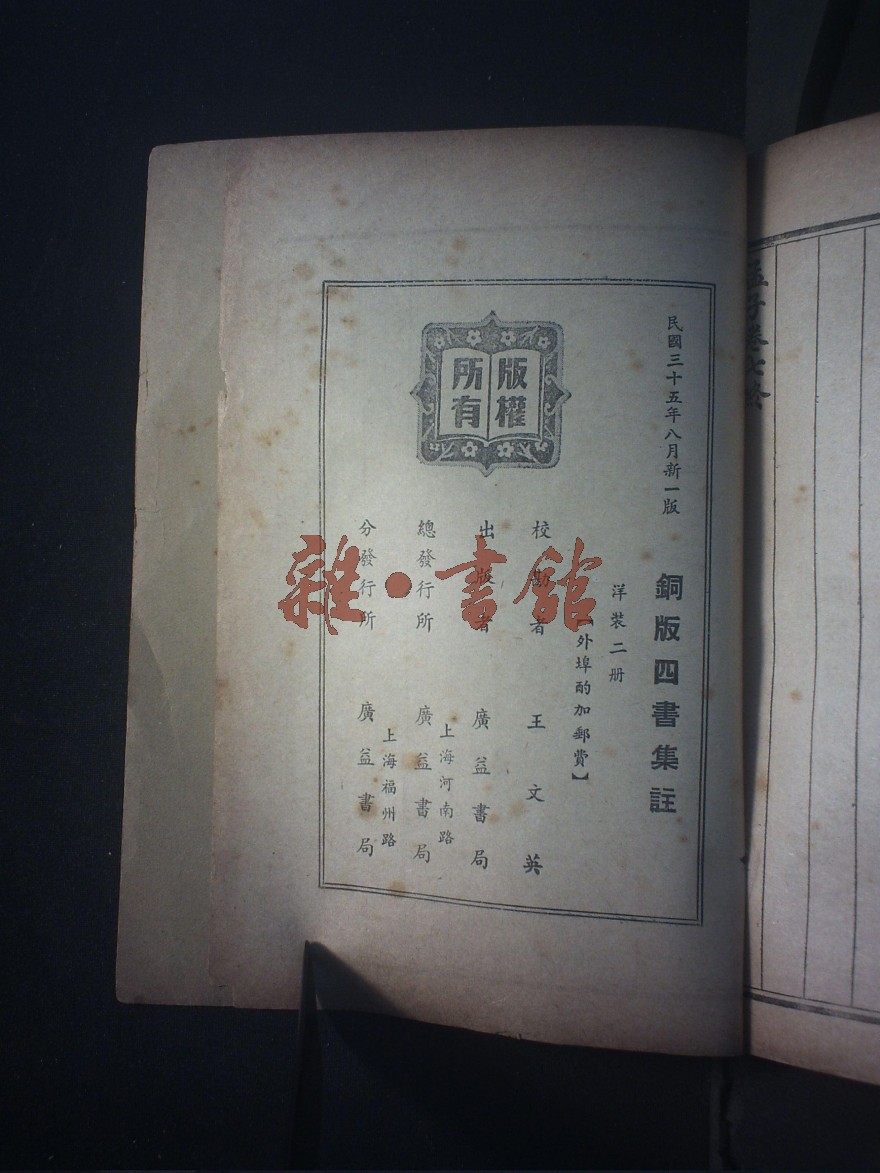 孟子卷七終
民國三十五年八月新一版
銅版四書集註
洋裝二册
【外埠酌加郵費】
校勘者 王文英
出版者 廣益書局
上海河南路
總發行所 廣益書局
上海福州路
分發行所 廣益書局
版權
所有
雜·書館